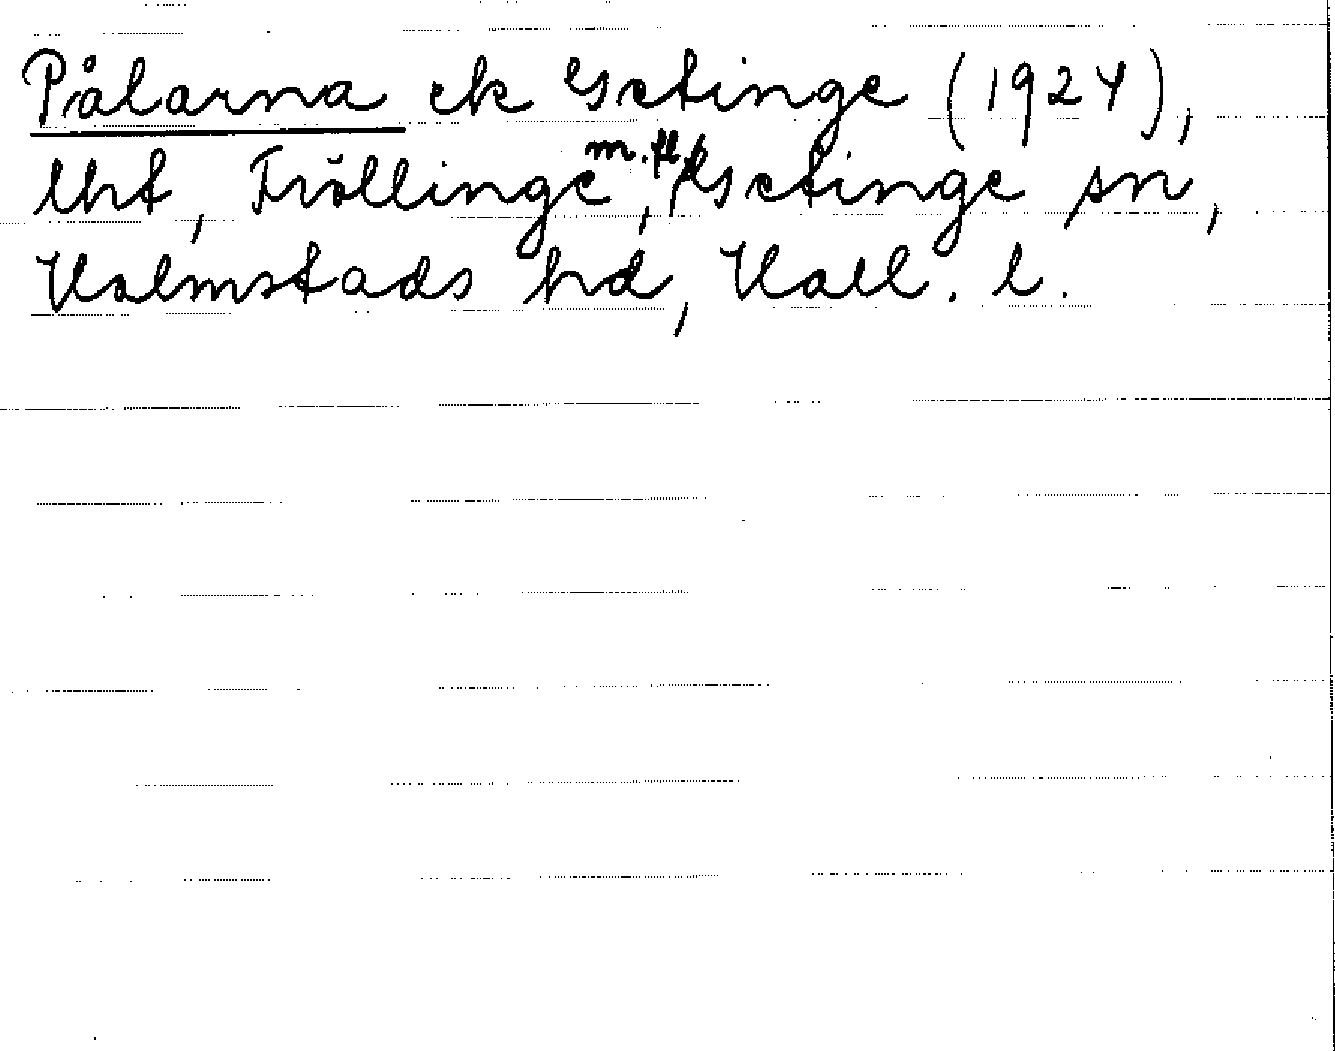 Pålarna ek Getinge (1924),
lht, Fröllinge m.fl., Getinge sn,
Halmstads hd, Hall. l.